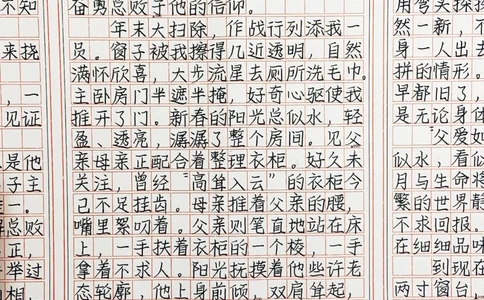 不知
来挠
，一
见证
是他
子主
一。
总败
正，
举过
奋勇总败于他的信仰。
年末大扫除，作战行列添我一
员。窗子被我擦得几近透明，自然
满怀欣喜，大步流星去厕所洗毛巾。
主卧房门半遮半掩，好奇心驱使我
推开了门。新春的阳光总似水，轻
盈、透亮，潺潺了整个房间。见父
亲母亲正配合着整理衣柜。好久未
关注，曾经“高耸入云”的衣柜今
已不足挂齿。母亲推着父亲的腰，
嘴里絮叨着。父亲则笔直地站在床
上，一手扶着衣柜的一个棱，一手
拿着不求人。阳光抚摸着他些许老
态轮廓，他上身前倾，双肩耸起，
用弯头探
然一新，不
身一人出去
拼的情形。
早都旧了，
是无论身体
“父爱如
似水，看似
月与生命将
繁的世界静
不求回报。
在细细品味
到现在
两寸窗台，